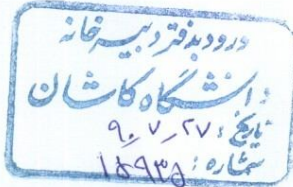 ورود بدفتر دبیرخانه
دانشگاه کاشان
تاریخ: ۹۰٫۷٫۲۷
شماره: ۱۵۹۳۵